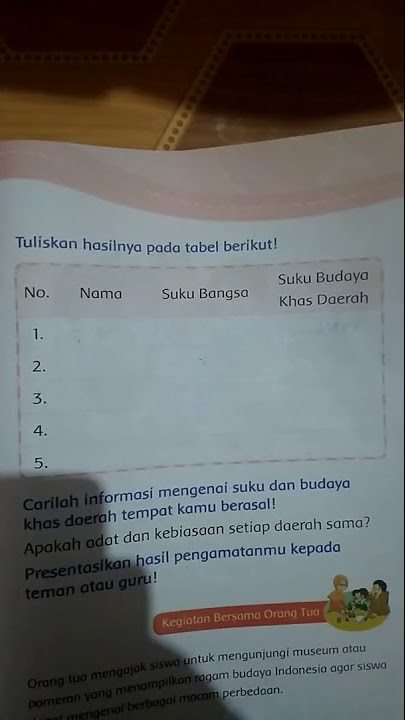 Tuliskan hasilnya pada tabel berikut!
No. Nama Suku Bangsa Suku Budaya Khas Daerah
1.
2.
3.
4.
5.
Carilah informasi mengenai suku dan budaya
khas daerah tempat kamu berasal!
Apakah adat dan kebiasaan setiap daerah sama?
Presentasikan hasil pengamatanmu kepada
teman atau guru!
Kegiatan Bersama Orang Tua
Orang tua mengajak siswa untuk mengunjungi museum atau
pameran yang menampilkan ragam budaya Indonesia agar siswa
mengenai berbagai macam perbedaan.